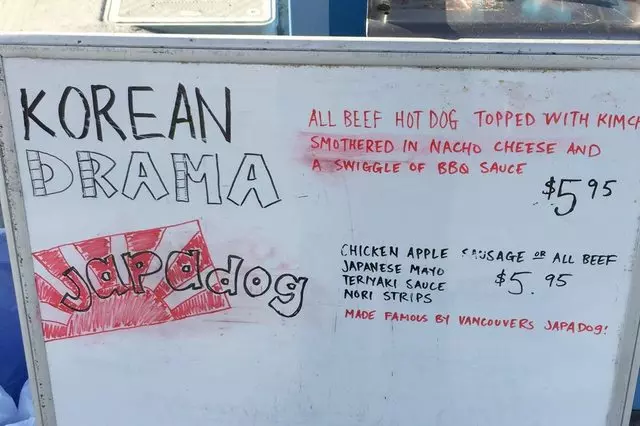 KOREAN
DRAMA
ALL BEEF HOT DOG TOPPED WITH
SMOTHERED IN NACHO CHEESE AND
A SWIGGLE OF BBQ SAUCE
$5 95
japadog
CHICKEN APPLE SAUSAGE OR ALL BEEF
JAPANESE MAYO
TERIYAKI SAUCE
NORI STRIPS
$5.95
MADE FAMOUS BY VANCOUVERS JAPADOG!